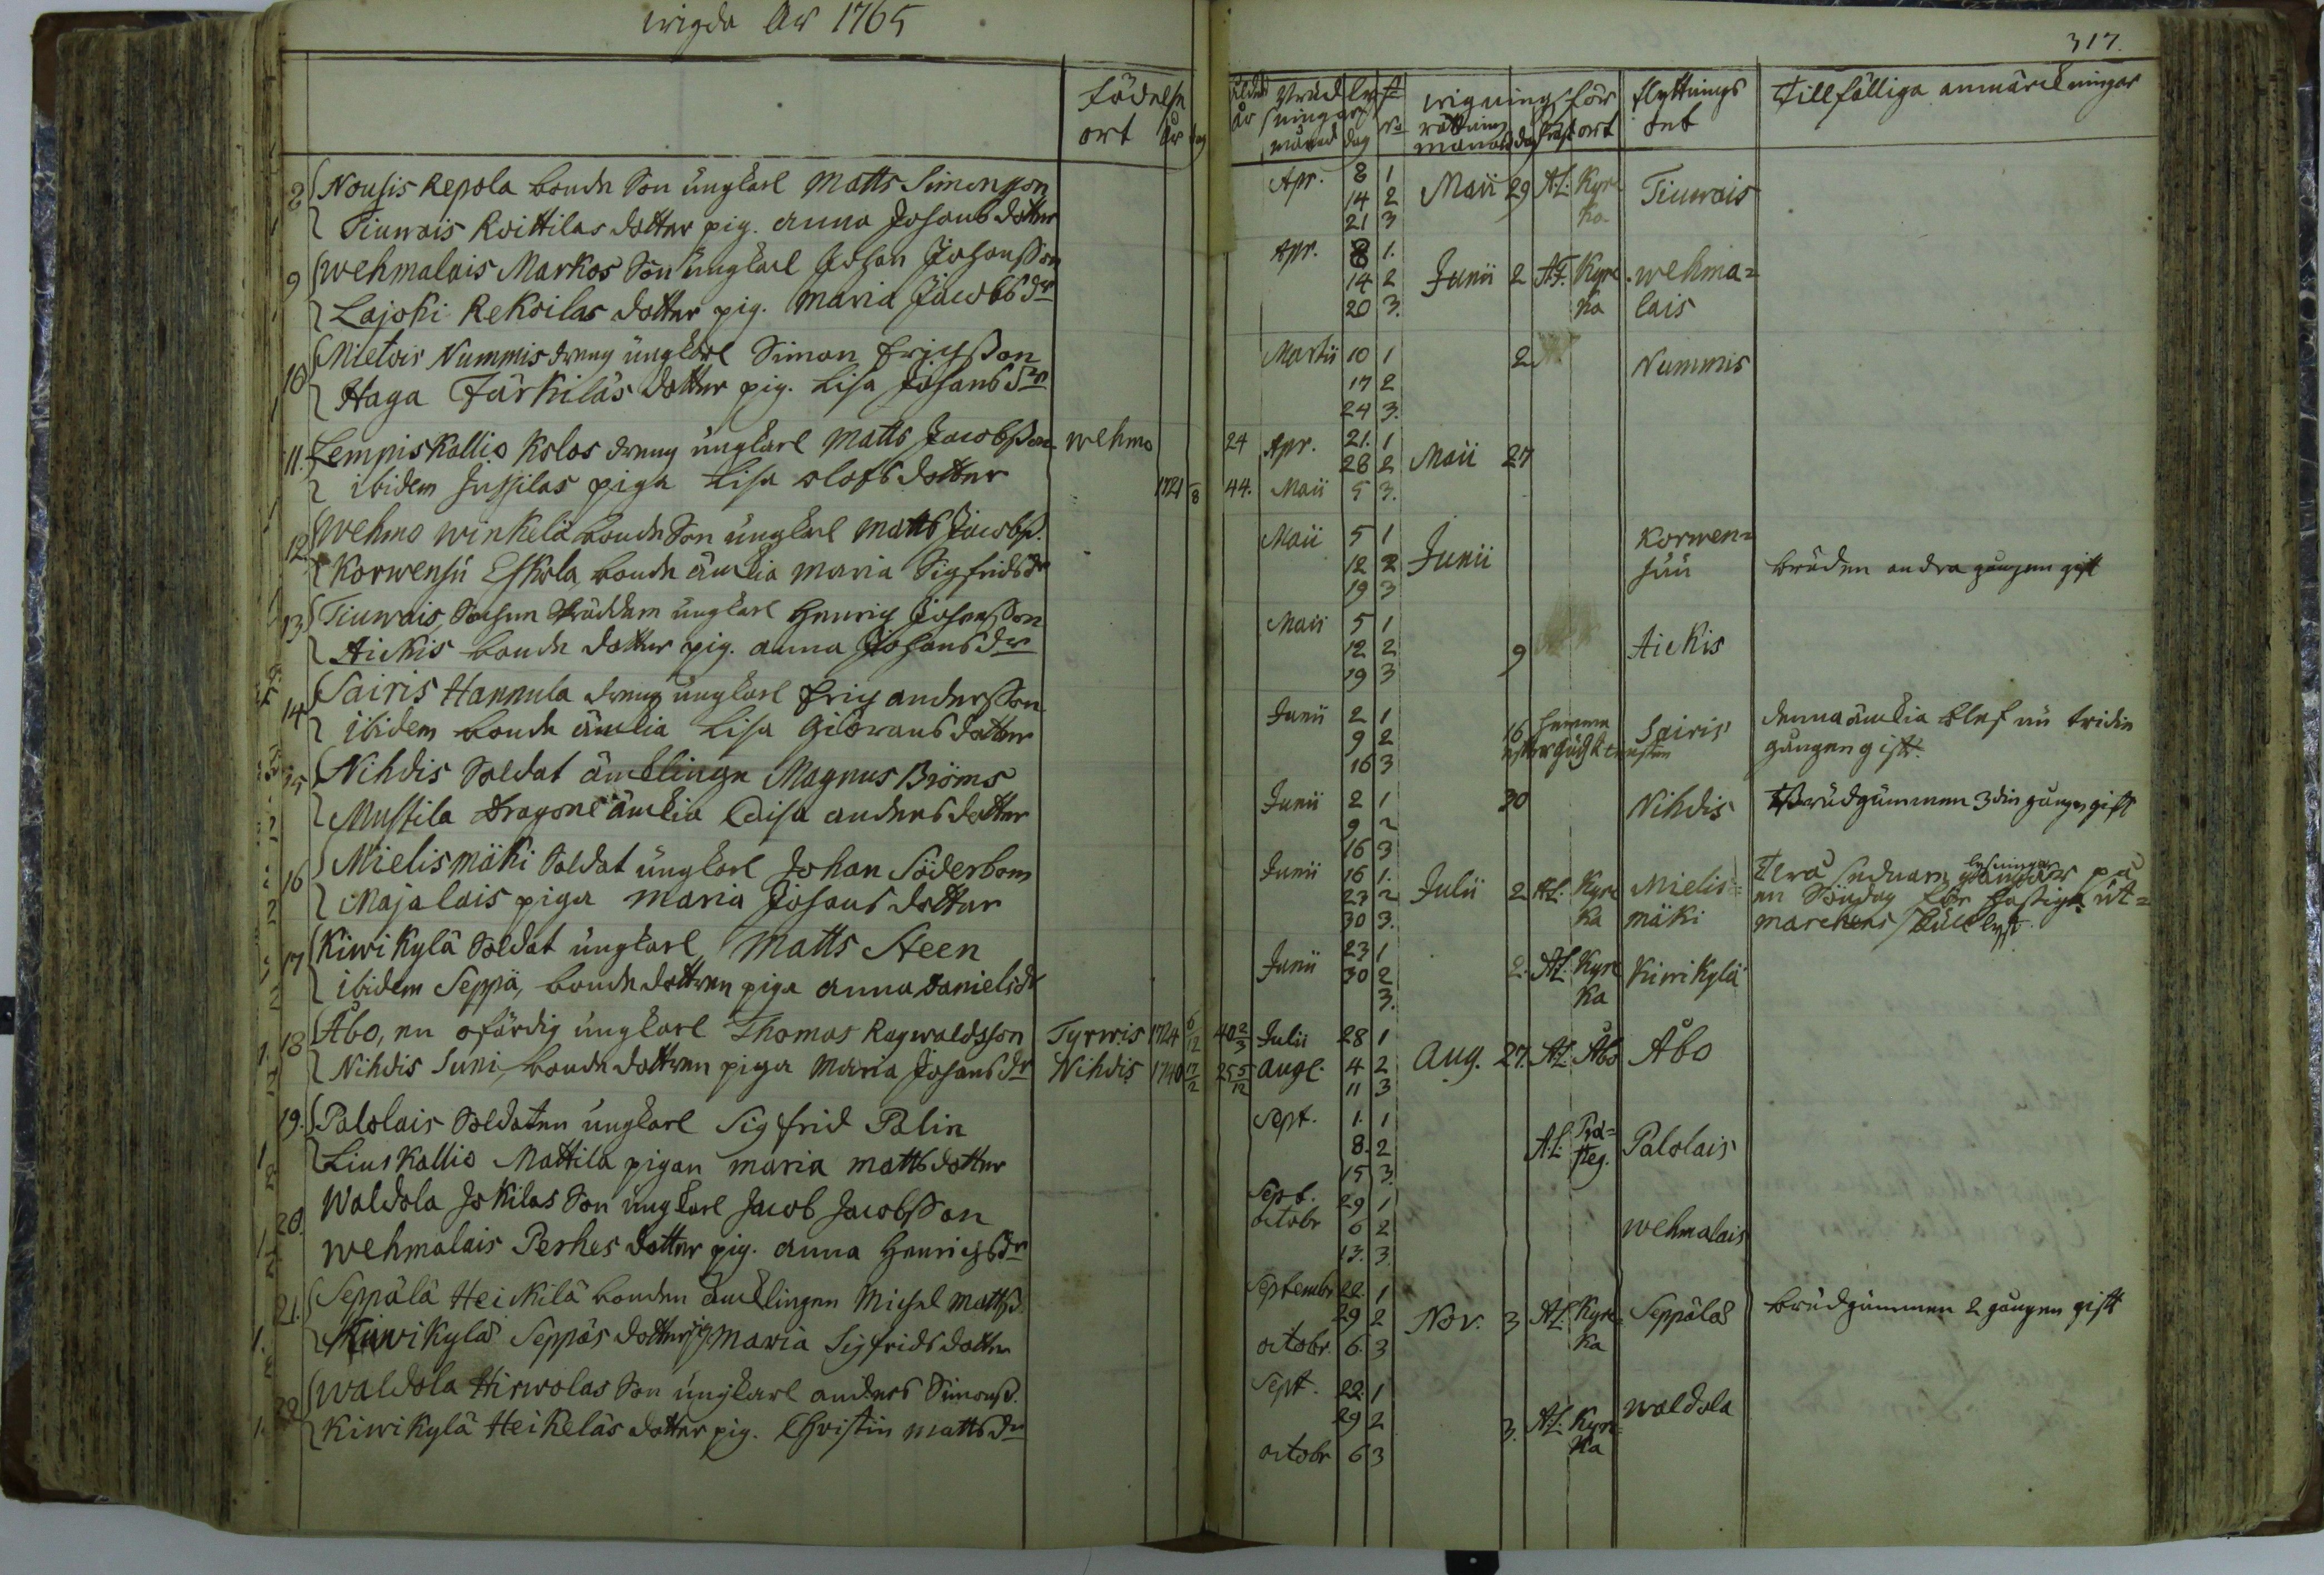 wigda År 1765
födelse
ort År dag
8 Nousis Repola bonde Son ungkarl Matts Simonsson
Tiuwais Koittilas dotter pig. anna Johans dotter
9 Wehmalais Markos Son ungkarl Johan Johansson
Lajoki Rekoilas dotter pig. Maria Jacobs dr
10 Mietois Nummis dreng ungkarl Simon Erichsson
Haga Tärkiläs dotter pig. Lisa Johans dr
11. Lempiskallio Kolas dreng ungkarl Matts Jacobsson Wehmo
ibidem Jussilas piga Lisa olofs dotter 1721 8
12 Wehmo Winkelä bonde Son ungkarl Matts Jacobss.
Korwensu Eskola bonde änckia Maria Sigfrids dr
13 Tiuwais Sochne Skräddaren ungkarl Henrich Johansson
Aickis bonde dotter pig. anna Johans dr
14 Sairis Hannula dreng ungkarl Erich andersson
ibidem bonde änckia Lisa dotter
15 Nihdis Soldat äncklinge Magnus Bröms
Mustila Dragone änckia Caisa anders dotter
16 Mielismäki Soldat ungkarl Johan Söderbom
Majalais piga Maria Johans dotter
17 Kiwikylä Soldat ungkarl Matts Steen
ibidem Seppä, bonde dottren piga anna Daniels dr
18 Åbo, en ofärdig ungkarl Thomas Ragwaldsson Tyrwis 1724 6/12
Nihdis Suni, bonde dottren piga Maria Johans dr Nihdis 1740 17/2
19. Palolais Soldaten ungkarl Sigfrid Palin
Liuskallio Mattila pigan maria matts dotter
20. Waldola Jokilas Son ungkarl Jacob Jacobsson
Wehmalais Perhes dotter pig. anna Henrichs dr
21. Seppälä Heickilä bonden äncklingen Michel Mattss.
Kiwikyläs Seppäs dotter pig. Maria Sigfrids dotter
22 Waldola Hirwolas Son ungkarl anders Simonss.
Kiwikylä Heikeläs dotter pig. Christin matts dr
317.
Ålder År lysningar månad dag No wigning förrättning månad dag Präst ort flyttnings ort Tillfälliga anmärckningar
Apr. 8 1 Maii 29 A.L. Kyr- Tiuwais
14 2 ka
21 3
Apr. 8 1. Junii 2 A.F. Kyrc wehma=
14 2 ka lais
20 3.
Martii 10 1 2 Nummis
17 2
24 3.
24 Apr. 21. 1
28 2 Maii 27
44. Maii 5 3.
Maii 5 1 Korwen=
12 2 Junii suu bruden andra gången gift
19 3
Maii 5 1
12 2 9 Aickis
19 3
Junii 2 1 16 hemma Sairis denna änckia blef nu tridie
9 2 gången gift.
16 3
Junii 2 1 30 Nihdis Brudgummen 3die gången gift
9 2
16 3
Junii 16 1. Julii 2 A.L. Kyrc Mielis= Twå lysningar på
23 2 ka mäki en Söndag för hastigt ut=
30 3. marchens skull lyst
Junii 23 1 2. A.L. Kyrc Kiwikylä
30 2 ka
3.
40 2/3 Julii 28 1 Aug. 27. A.L. Åbo Åbo
25 5/12 aug. 4 2
11 3
Sept. 1. 1
8. 2 A.L. Prä= Palolais
15 3. steg.
Sept. 29 1
octobr 6 2 wehmalais
13. 3
Septembr 22. 1
29 2 Nov. 3 A.L. Kyrc Seppälä brudgummen 2 gången gift
octobr. 6. 3 ka
Sept. 22. 1
29 2 3. A.L. Kyrc waldola
octobr 6 3 ka